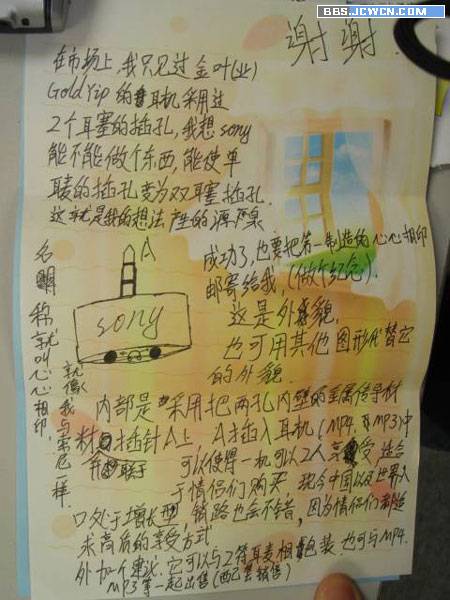 BBS.JCWCN.COM
谢谢.
在市场上,我只见过金叶(业)
Gold Yip 的耳机采用过
2个耳塞的插孔,我想sony
能不能做个东西,能使单
耳的插孔变为双耳塞插孔.
这就是我的想法产的源
成功了,也要把第一制造的心心相印
邮寄给我,(做个纪念).
A
sony
这是外貌.
也可用其他图形代替它
的外貌.
名称就叫心心相印,
就像我与索尼一样.
内部是采用把两孔内壁的金属传导材
料插针A上 A插入耳机(MP4.及MP3)中
可以使得一机可以2人享受,适合
于情侣们购买 现今中国以及世界人
口处于增长型,销路也会不错,因为情侣们都追
求高层的享受方式
外加个建议.它可以与2符耳麦相包装 也可与MP4.
MP3等一起出售(西己套销售)